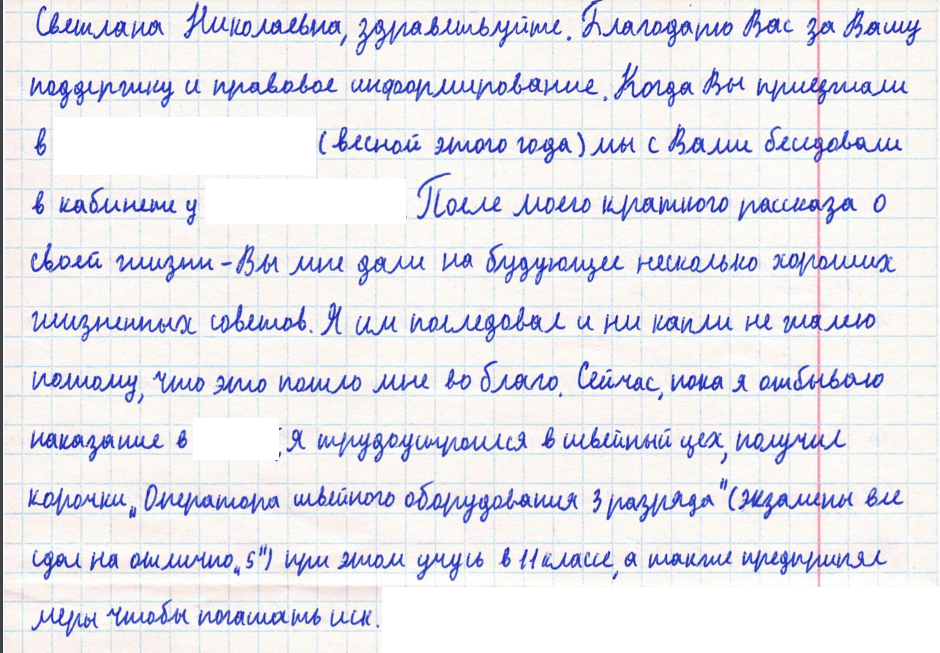 Светлана Николаевна, здравствуйте. Благодарю Вас за Вашу
поддержку и правовое информирование. Когда Вы приезжали
в (весной этого года) мы с Вами беседовали
в кабинете у После моего краткого рассказа о
своей жизни - Вы мне дали на будующее несколько хороших
жизненных советов. Я им последовал и ни капли не жалею
потому, что это пошло мне во благо. Сейчас, пока я отбываю
наказание в , я трудоустроился в швейный цех, получил
корочки „Оператора швейного оборудования 3 разряда" (экзамены все
сдал на отлично „5") при этом учусь в 11 классе, а также предпринял
меры чтобы погашать иск.